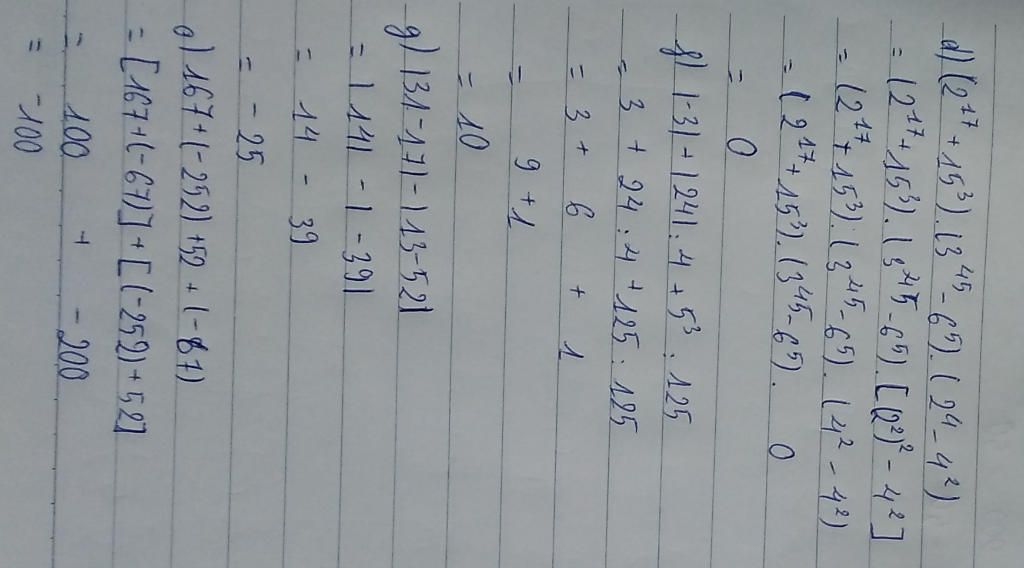 d) (2¹⁷ + 15³) . (3⁴⁵ - 6⁵) . (2⁴ - 4²)
= (2¹⁷ + 15³) . (3⁴⁵ - 6⁵) . [(2²)² - 4²]
= (2¹⁷ + 15³) . (3⁴⁵ - 6⁵) . (4² - 4²)
= (2¹⁷ + 15³) . (3⁴⁵ - 6⁵) . 0
= 0
f) |-3| + |24| : 4 + 5³ : 125
= 3 + 24 : 4 + 125 : 125
= 3 + 6 + 1
= 9 + 1
= 10
g) |31 - 17| - |13 - 52|
= |14| - |-39|
= 14 - 39
= -25
o) 167 + (-252) + 52 + (-67)
= [167 + (-67)] + [(-252) + 52]
= 100 + -200
= -100